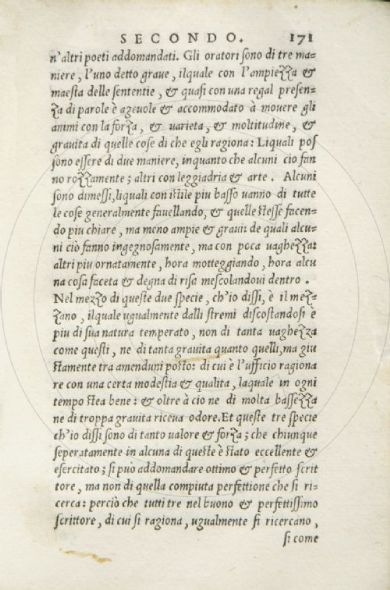 SECONDO. 171
n'altri poeti addomandati. Gli oratori sono di tre ma-
niere, l'uno detto graue, ilquale con l'ampiezza &
maesta delle sententie, & quasi con una regal presen-
za di parole è ageuole & accommodato à mouere gli
animi con la forza, & uarieta, & moltitudine, &
grauita di quelle cose di che egli ragiona: Liquali pos
sono essere di due maniere, inquanto che alcuni cio fan
no rozzamente; altri con leggiadria & arte. Alcuni
sono dimessi, liquali con istile piu basso uanno di tutte
le cose generalmente fauellando, & quelle stesse facen-
do piu chiare, ma meno ampie & graui: de quali alcu-
ni ciò fanno ingegnosamente, ma con poca uaghezza:
altri piu ornatamente, hora motteggiando, hora alcu
na cosa faceta & degna di risa mescolandoui dentro.
Nel mezzo di queste due specie, ch'io dissi, è il mez-
zano, ilquale ugualmente dalli stremi discostandosi è
piu di sua natura temperato, non di tanta uaghezza
come questi, ne di tanta grauita quanto quelli, ma giu
stamente tra amenduni posto: di cui è l'ufficio ragiona
re con una certa modestia & qualita, laquale in ogni
tempo stea bene: & oltre à cio ne di molta bassezza
ne di troppa grauita riceua odore. Et queste tre specie
ch'io dissi sono di tanto ualore & forza; che chiunque
seperatamente in alcuna di queste è stato eccellente &
esercitato; si può addomandare ottimo & perfetto scrit
tore, ma non di quella compiuta perfettione che si ri-
cerca: perciò che tutti tre nel buono & perfettissimo
scrittore, di cui si ragiona, ugualmente si ricercano,
si come